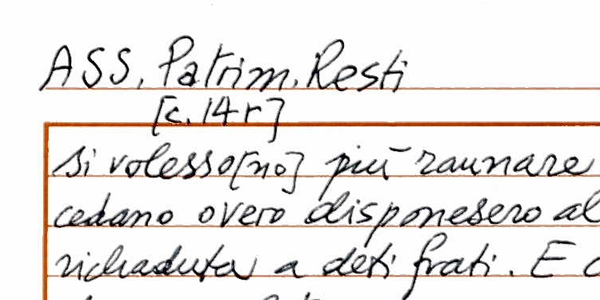 ASS, Patrim. Resti
[c. 14r]
si volesso[no] più raunare
cedano overo disponesero al
richaduta a deti frati. E